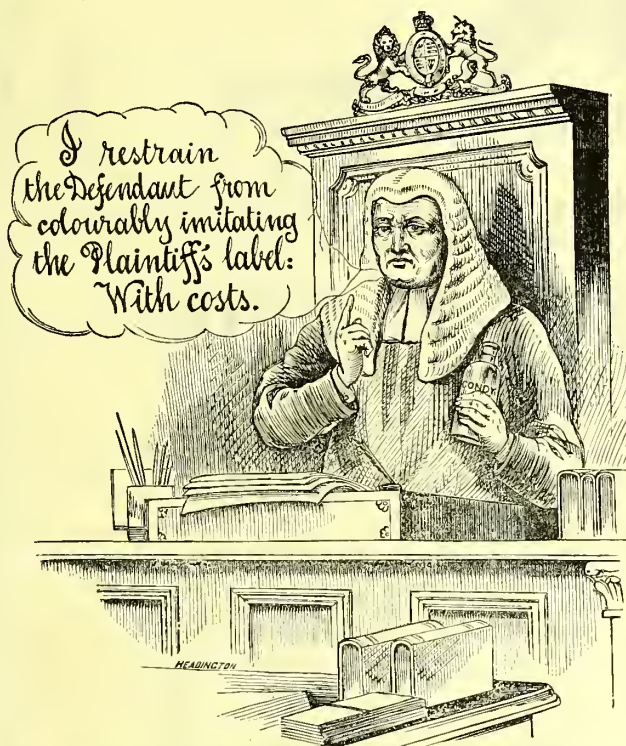 I restrain
the Defendant from
colourably imitating
the Plaintiff's label:
With costs.
CONDY
HEADINGTON